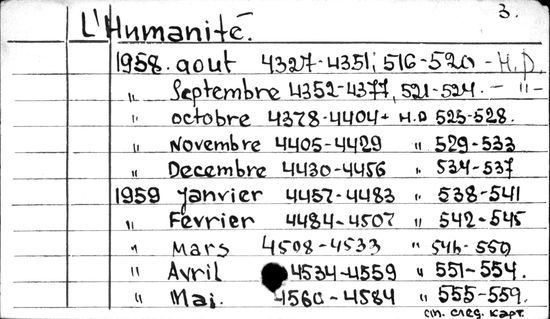 3.
L'Humanité.
1958. aout 4327-4351; 516-520 - H.D.
" Septembre 4352-4377, 521-524. - " -
" octobre 4378-4404 + H.D 525-528.
" Novembre 4405-4429 " 529-533
" Decembre 4430-4456 " 534-537
1959 janvier 4457-4483 " 538-541
" Février 4484-4507 " 542-545
" Mars 4508-4533 " 546-550
" Avril 4534-4559 " 551-554.
" Mai. 4560-4584 " 555-559.
см. след. карт.